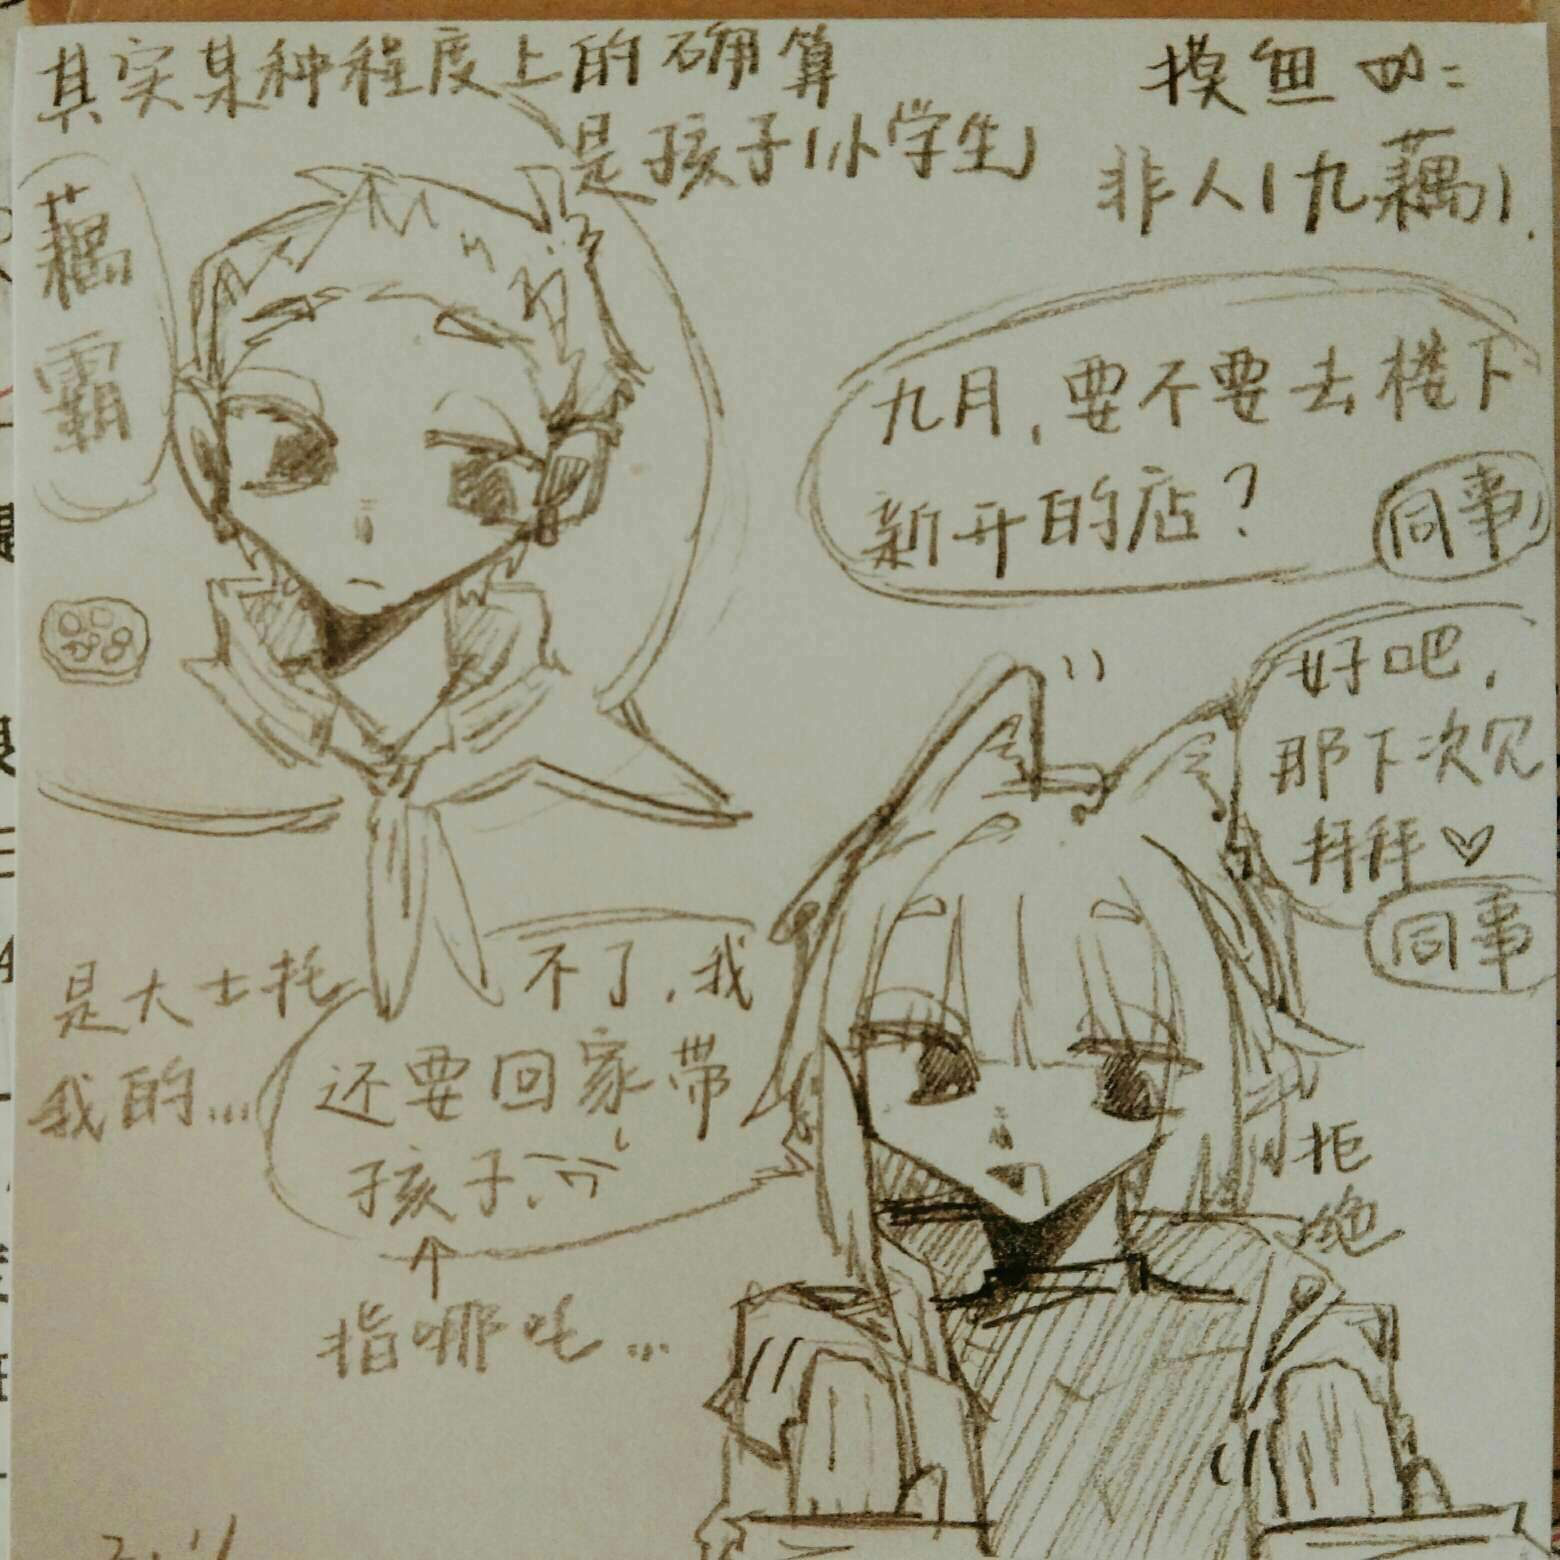 其实某种程度上的确算
是孩子(小学生)
摸鱼
非人(九藕).
藕
霸
九月,要不要去楼下
新开的店?
同事
好吧,
那下次见
拜拜♡
同事
是大士托
我的...
不了,我
还要回家带
孩子.
指哪吒...
拒
绝